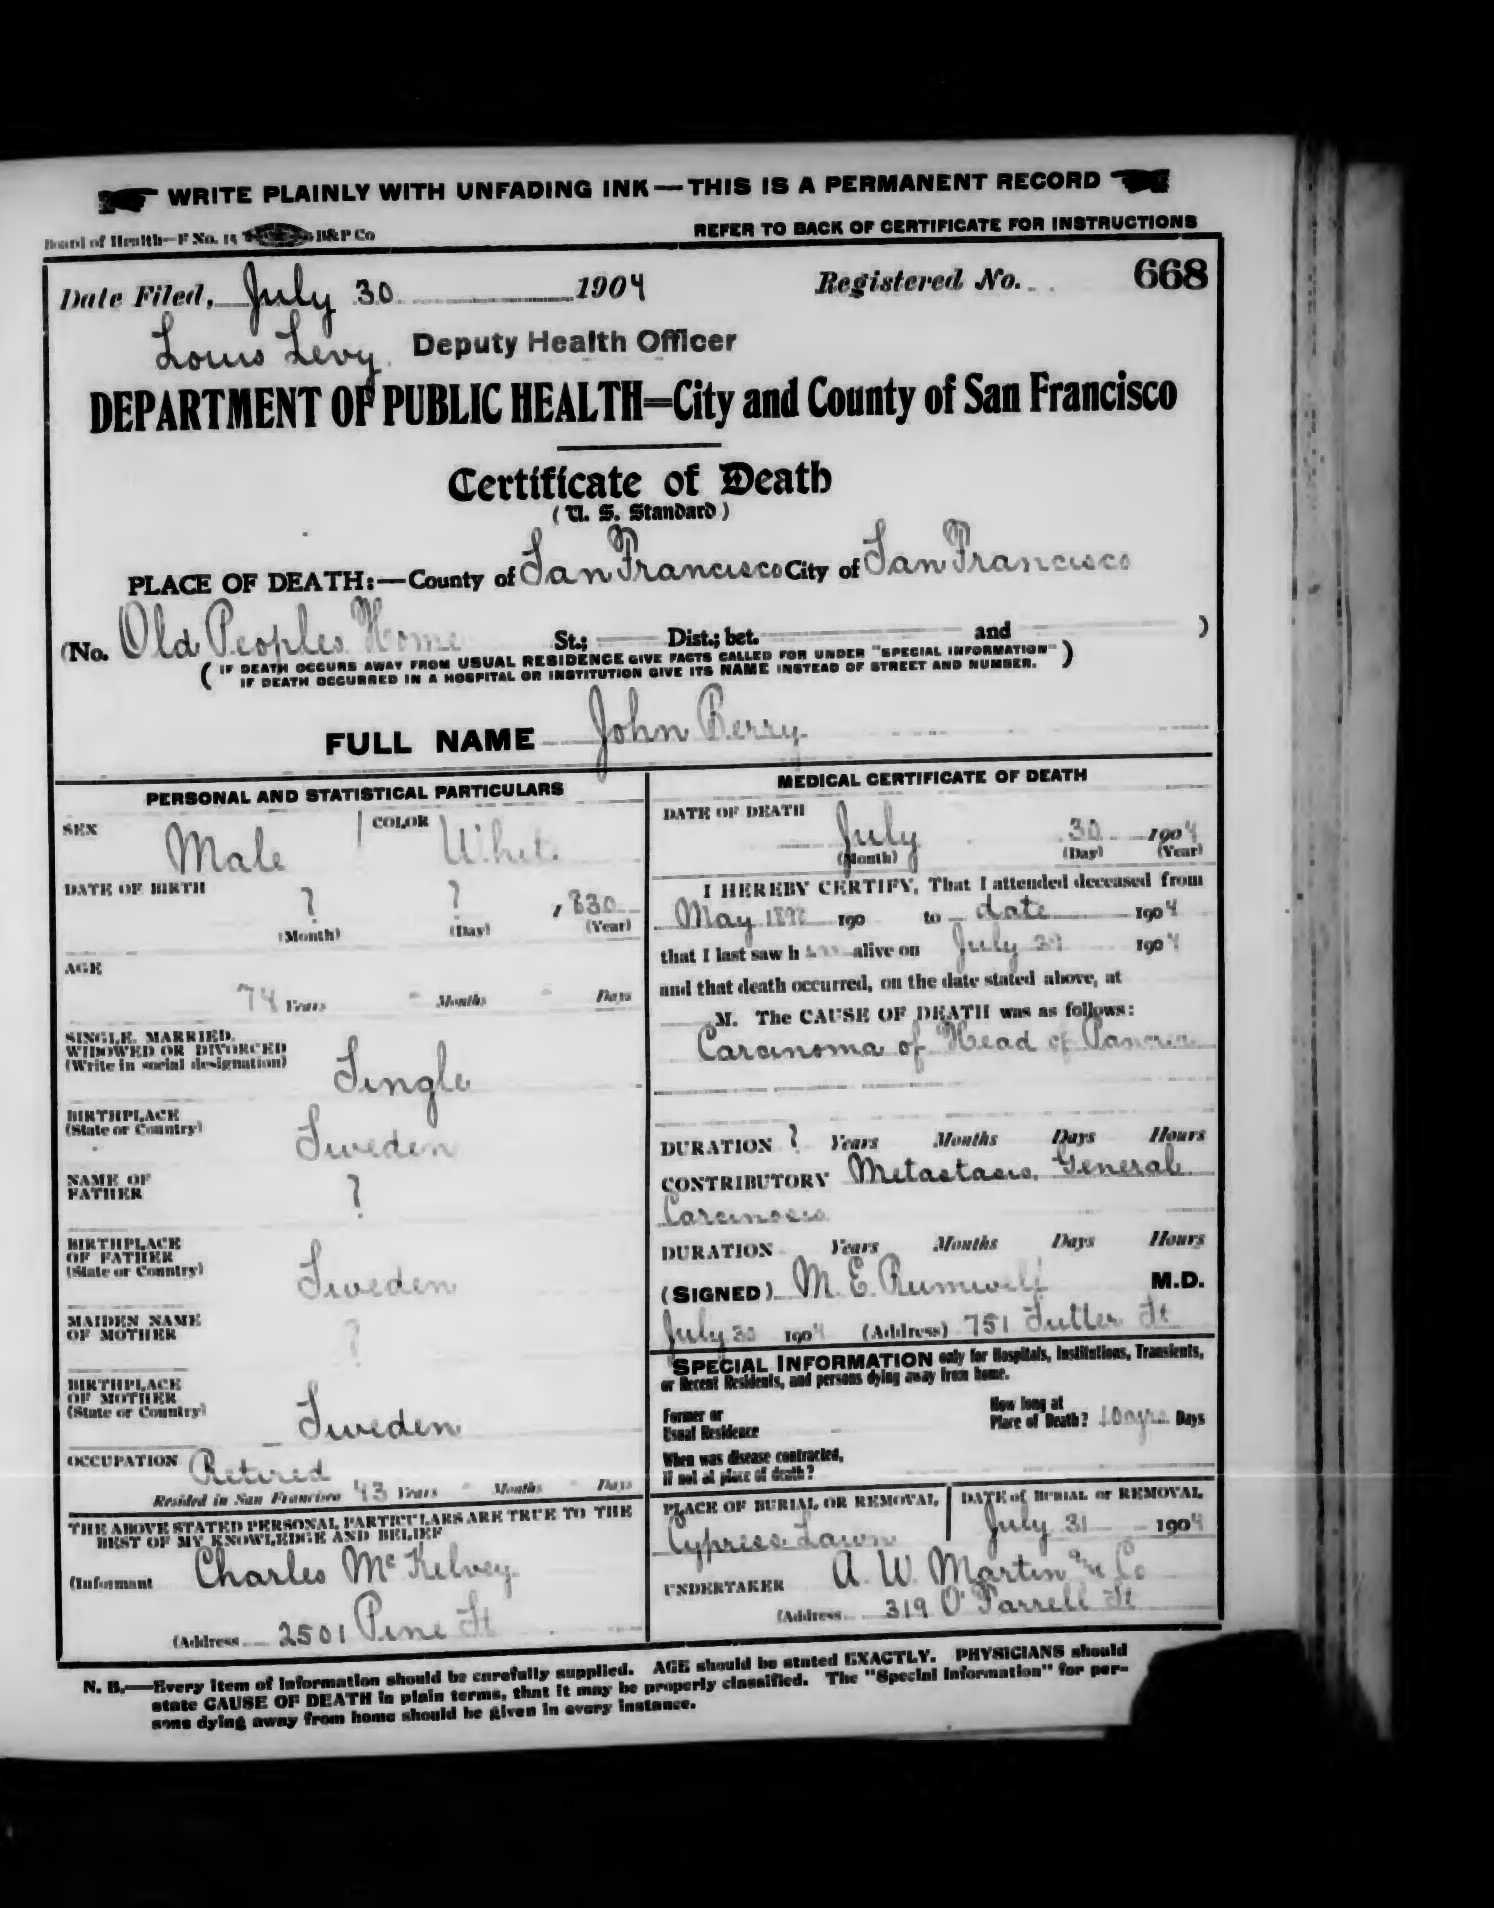 WRITE PLAINLY WITH UNFADING INK—THIS IS A PERMANENT RECORD
Board of Health—F No. 15 B&P Co
REFER TO BACK OF CERTIFICATE FOR INSTRUCTIONS
Date Filed, July 30 1904 Registered No. 668
Louis Levy Deputy Health Officer
DEPARTMENT OF PUBLIC HEALTH=City and County of San Francisco
Certificate of Death
(U. S. Standard)
PLACE OF DEATH:—County of San Francisco City of San Francisco
(No. Old Peoples Home St.; Dist.; bet. and )
( IF DEATH OCCURS AWAY FROM USUAL RESIDENCE GIVE FACTS CALLED FOR UNDER "SPECIAL INFORMATION" )
IF DEATH OCCURRED IN A HOSPITAL OR INSTITUTION GIVE ITS NAME INSTEAD OF STREET AND NUMBER.
FULL NAME John Berry
PERSONAL AND STATISTICAL PARTICULARS
SEX Male COLOR White
DATE OF BIRTH ? ? , 830
(Month) (Day) (Year)
AGE
74 Years - Months - Days
SINGLE, MARRIED,
WIDOWED OR DIVORCED
(Write in social designation) Single
BIRTHPLACE
(State or Country) Sweden
NAME OF
FATHER ?
BIRTHPLACE
OF FATHER
(State or Country) Sweden
MAIDEN NAME
OF MOTHER ?
BIRTHPLACE
OF MOTHER
(State or Country) Sweden
OCCUPATION Retired
Resided in San Francisco 43 Years - Months - Days
THE ABOVE STATED PERSONAL PARTICULARS ARE TRUE TO THE
BEST OF MY KNOWLEDGE AND BELIEF
(Informant Charles McKelvey
(Address 2501 Pine St
MEDICAL CERTIFICATE OF DEATH
DATE OF DEATH
July 30 1904
(Month) (Day) (Year)
I HEREBY CERTIFY, That I attended deceased from
May 190 to date 1904
that I last saw h alive on July 1904
and that death occurred, on the date stated above, at
M. The CAUSE OF DEATH was as follows:
Carcinoma of Head of
DURATION ? Years Months Days Hours
CONTRIBUTORY Metastasis, General
Carcinosis
DURATION Years Months Days Hours
(SIGNED) M. E. Rumwell M.D.
July 30 1904 (Address) 751 Sutter St
SPECIAL INFORMATION only for Hospitals, Institutions, Transients,
or Recent Residents, and persons dying away from home.
Former or
Usual Residence
How long at
Place of Death? 10 yrs Days
When was disease contracted,
If not at place of death?
PLACE OF BURIAL OR REMOVAL
Cypress Lawn
DATE of BURIAL or REMOVAL
July 31 1904
UNDERTAKER A. W. Martin & Co
(Address 319 O'Farrell St
N. B.—Every item of information should be carefully supplied. AGE should be stated EXACTLY. PHYSICIANS should
state CAUSE OF DEATH in plain terms, that it may be properly classified. The "Special Information" for per-
sons dying away from home should be given in every instance.